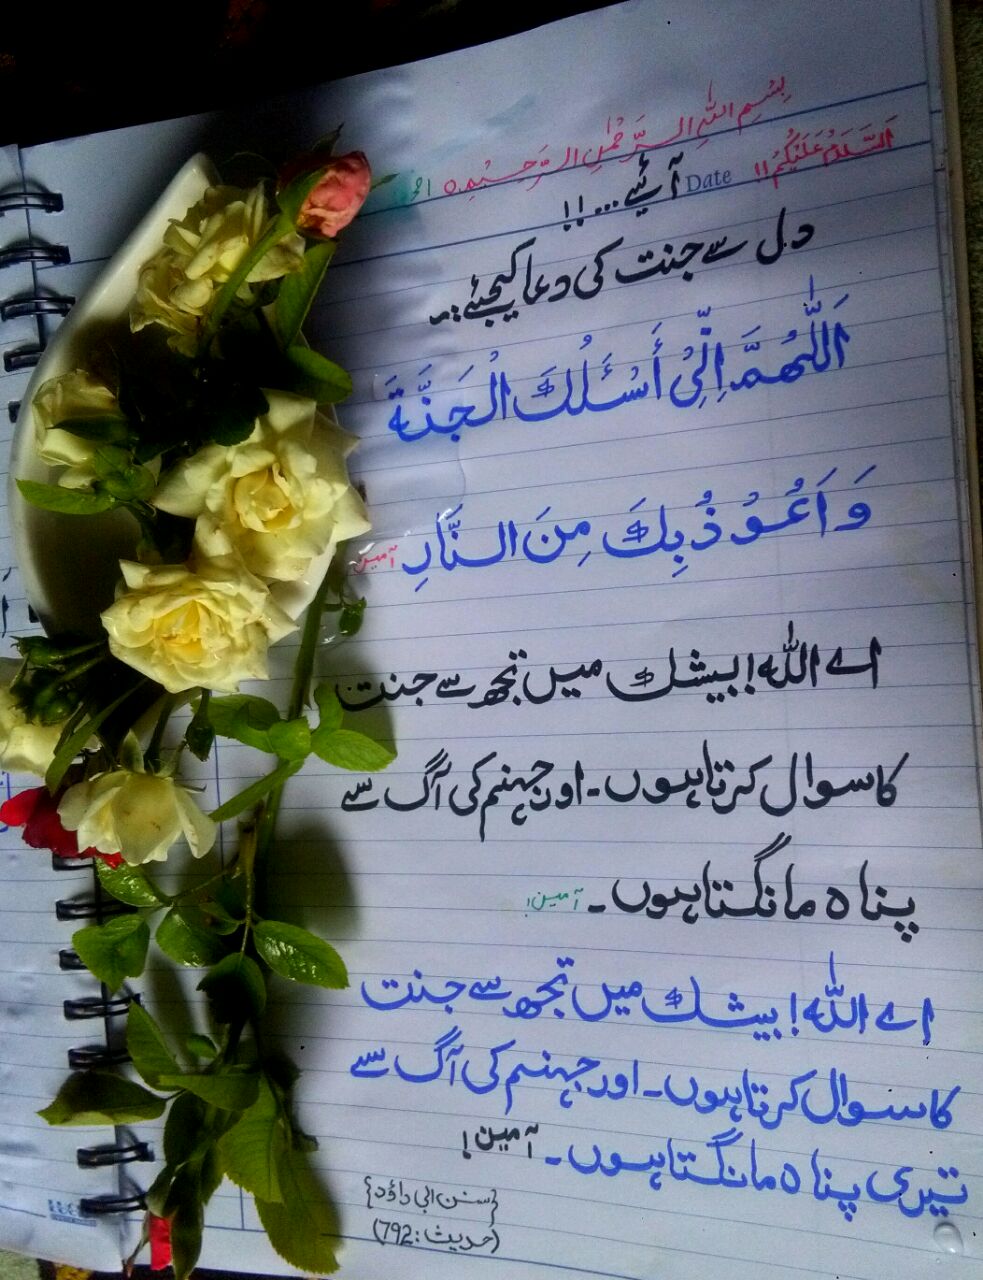 بِسْمِ اللهِ الرَّحْمٰنِ الرَّحِيْمِ
اَلسَّلَامُ عَلَيْكُمْ!!
Date
آئیے...!!
دل سے جنت کی دعا کیجئے:..
اَللّٰهُمَّ اِنِّیْ أَسْئَلُكَ الْجَنَّةَ
وَ اَعُوْذُ بِكَ مِنَ النَّارِ آمین
اے اللہ! بیشک میں تجھ سے جنت
کا سوال کرتا ہوں۔ اور جہنم کی آگ سے
پناہ مانگتا ہوں۔ آمین!
اے اللہ! بیشک میں تجھ سے جنت
کا سوال کرتا ہوں۔ اور جہنم کی آگ سے
تیری پناہ مانگتا ہوں۔ آمین!
{سنن ابی داؤد}
(حدیث: 792)